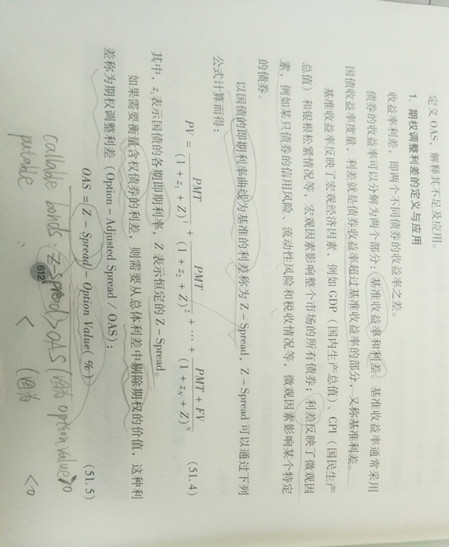 定义 OAS，解释其不足及应用。
1. 期权调整利差的定义与应用
收益率利差，即两个不同债券的收益率之差。
债券的收益率可以分解为两个部分：基准收益率和利差。基准收益率通常采用
国债收益率度量，利差就是债券收益率超过基准收益率的部分，又称基准利差。
基准收益率反映了宏观经济因素，例如 GDP（国内生产总值）、CPI（国民生产
总值）和银根松紧情况等，宏观因素影响整个市场的所有债券；利差反映了微观因
素，例如某只债券的信用风险、流动性风险和税收情况等，微观因素影响某个特定
的债券。
以国债的即期利率曲线为基准的利差称为 Z－Spread，Z－Spread 可以通过下列
公式计算而得：
PV = PMT/(1+z₁+Z)¹ + PMT/(1+z₂+Z)² + … + (PMT+FV)/(1+z_N+Z)^N (51.4)
其中，zᵢ表示国债的各期即期利率，Z 表示恒定的 Z－Spread。
如果需要衡量含权债券的利差，则需要从总体利差中剔除期权的价值，这种利
差称为期权调整利差（Option－Adjusted Spread／OAS）：
OAS = Z－Spread－Option Value(％) (51.5)
callable bonds: Zspread>OAS (因为 option value>0
putable : < (因为 <0
612